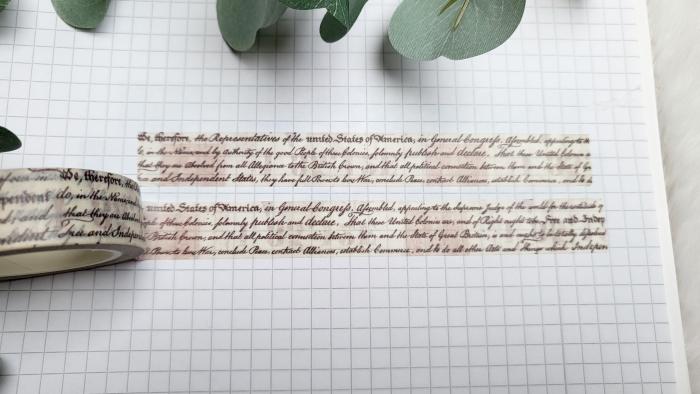 We, therefore, the Representatives of the united States of America, in General Congress, Assembled, appealing to the
in the Name, and by Authority of the good People of these Colonies, solemnly publish and declare, That these United Colonies a
that they are Absolved from all Allegiance to the British Crown, and that all political connection between them and the State of G
and Independent States, they have full Power to levy War, conclude Peace, contract Alliances, establish
united States of America, in General Congress, Assembled, appealing to the Supreme Judge of the world for the rectitude
of these Colonies, solemnly publish and declare, That these United Colonies are, and of Right ought to be Free and Indep
British Crown, and that all political connection between them and the State of Great Britain, is and ought to be totally dissolved
Power to levy War, conclude Peace, contract Alliances, establish Commerce, and to do all other Acts and Things which Indepen
We, therefore, the
pendent do, in the Name
and that they are Absol
Free and Indepen